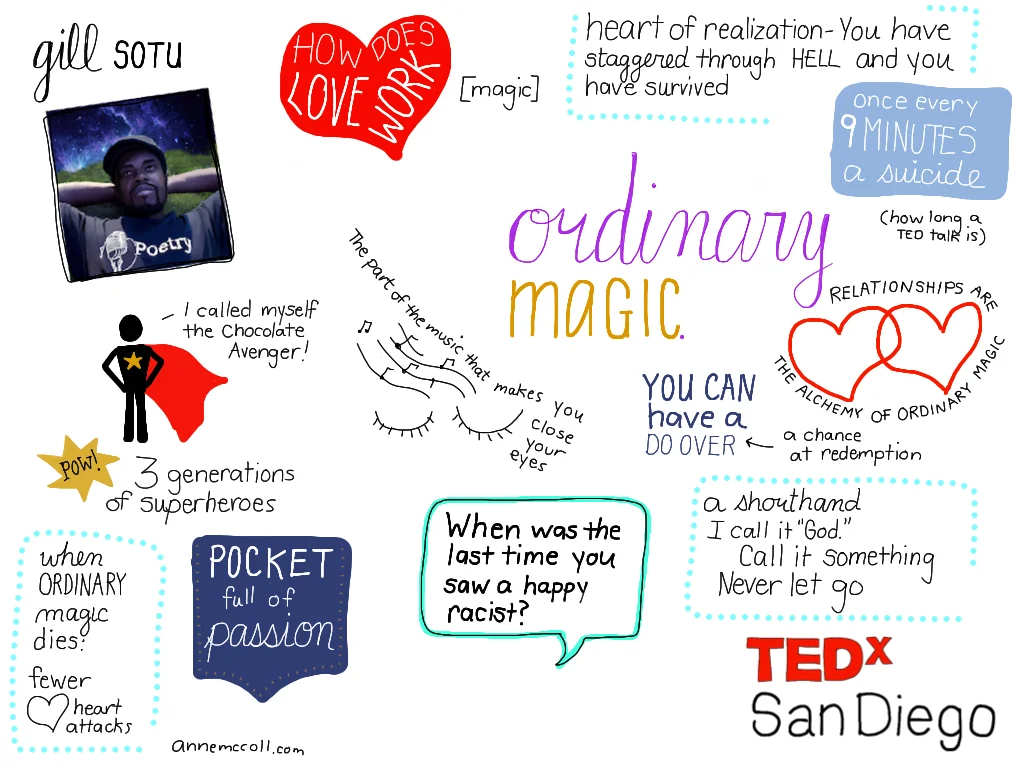 gill SOTU
HOW DOES
LOVE WORK
[magic]
heart of realization- You have
staggered through HELL and you
have survived
once every
9 MINUTES
a suicide
(how long a
TED talk is)
Poetry
ordinary
MAGIC.
I called myself
the Chocolate
Avenger!
The part of the music that makes you
close
your
eyes
RELATIONSHIPS ARE
THE ALCHEMY OF ORDINARY MAGIC
YOU CAN
have a
DO OVER
a chance
at redemption
POW!
3 generations
of superheroes
when
ORDINARY
magic
dies:
fewer
heart
attacks
POCKET
full of
passion
When was the
last time you
saw a happy
racist?
a shorthand
I call it "God."
Call it something
Never let go
TEDx
San Diego
annemccoll.com